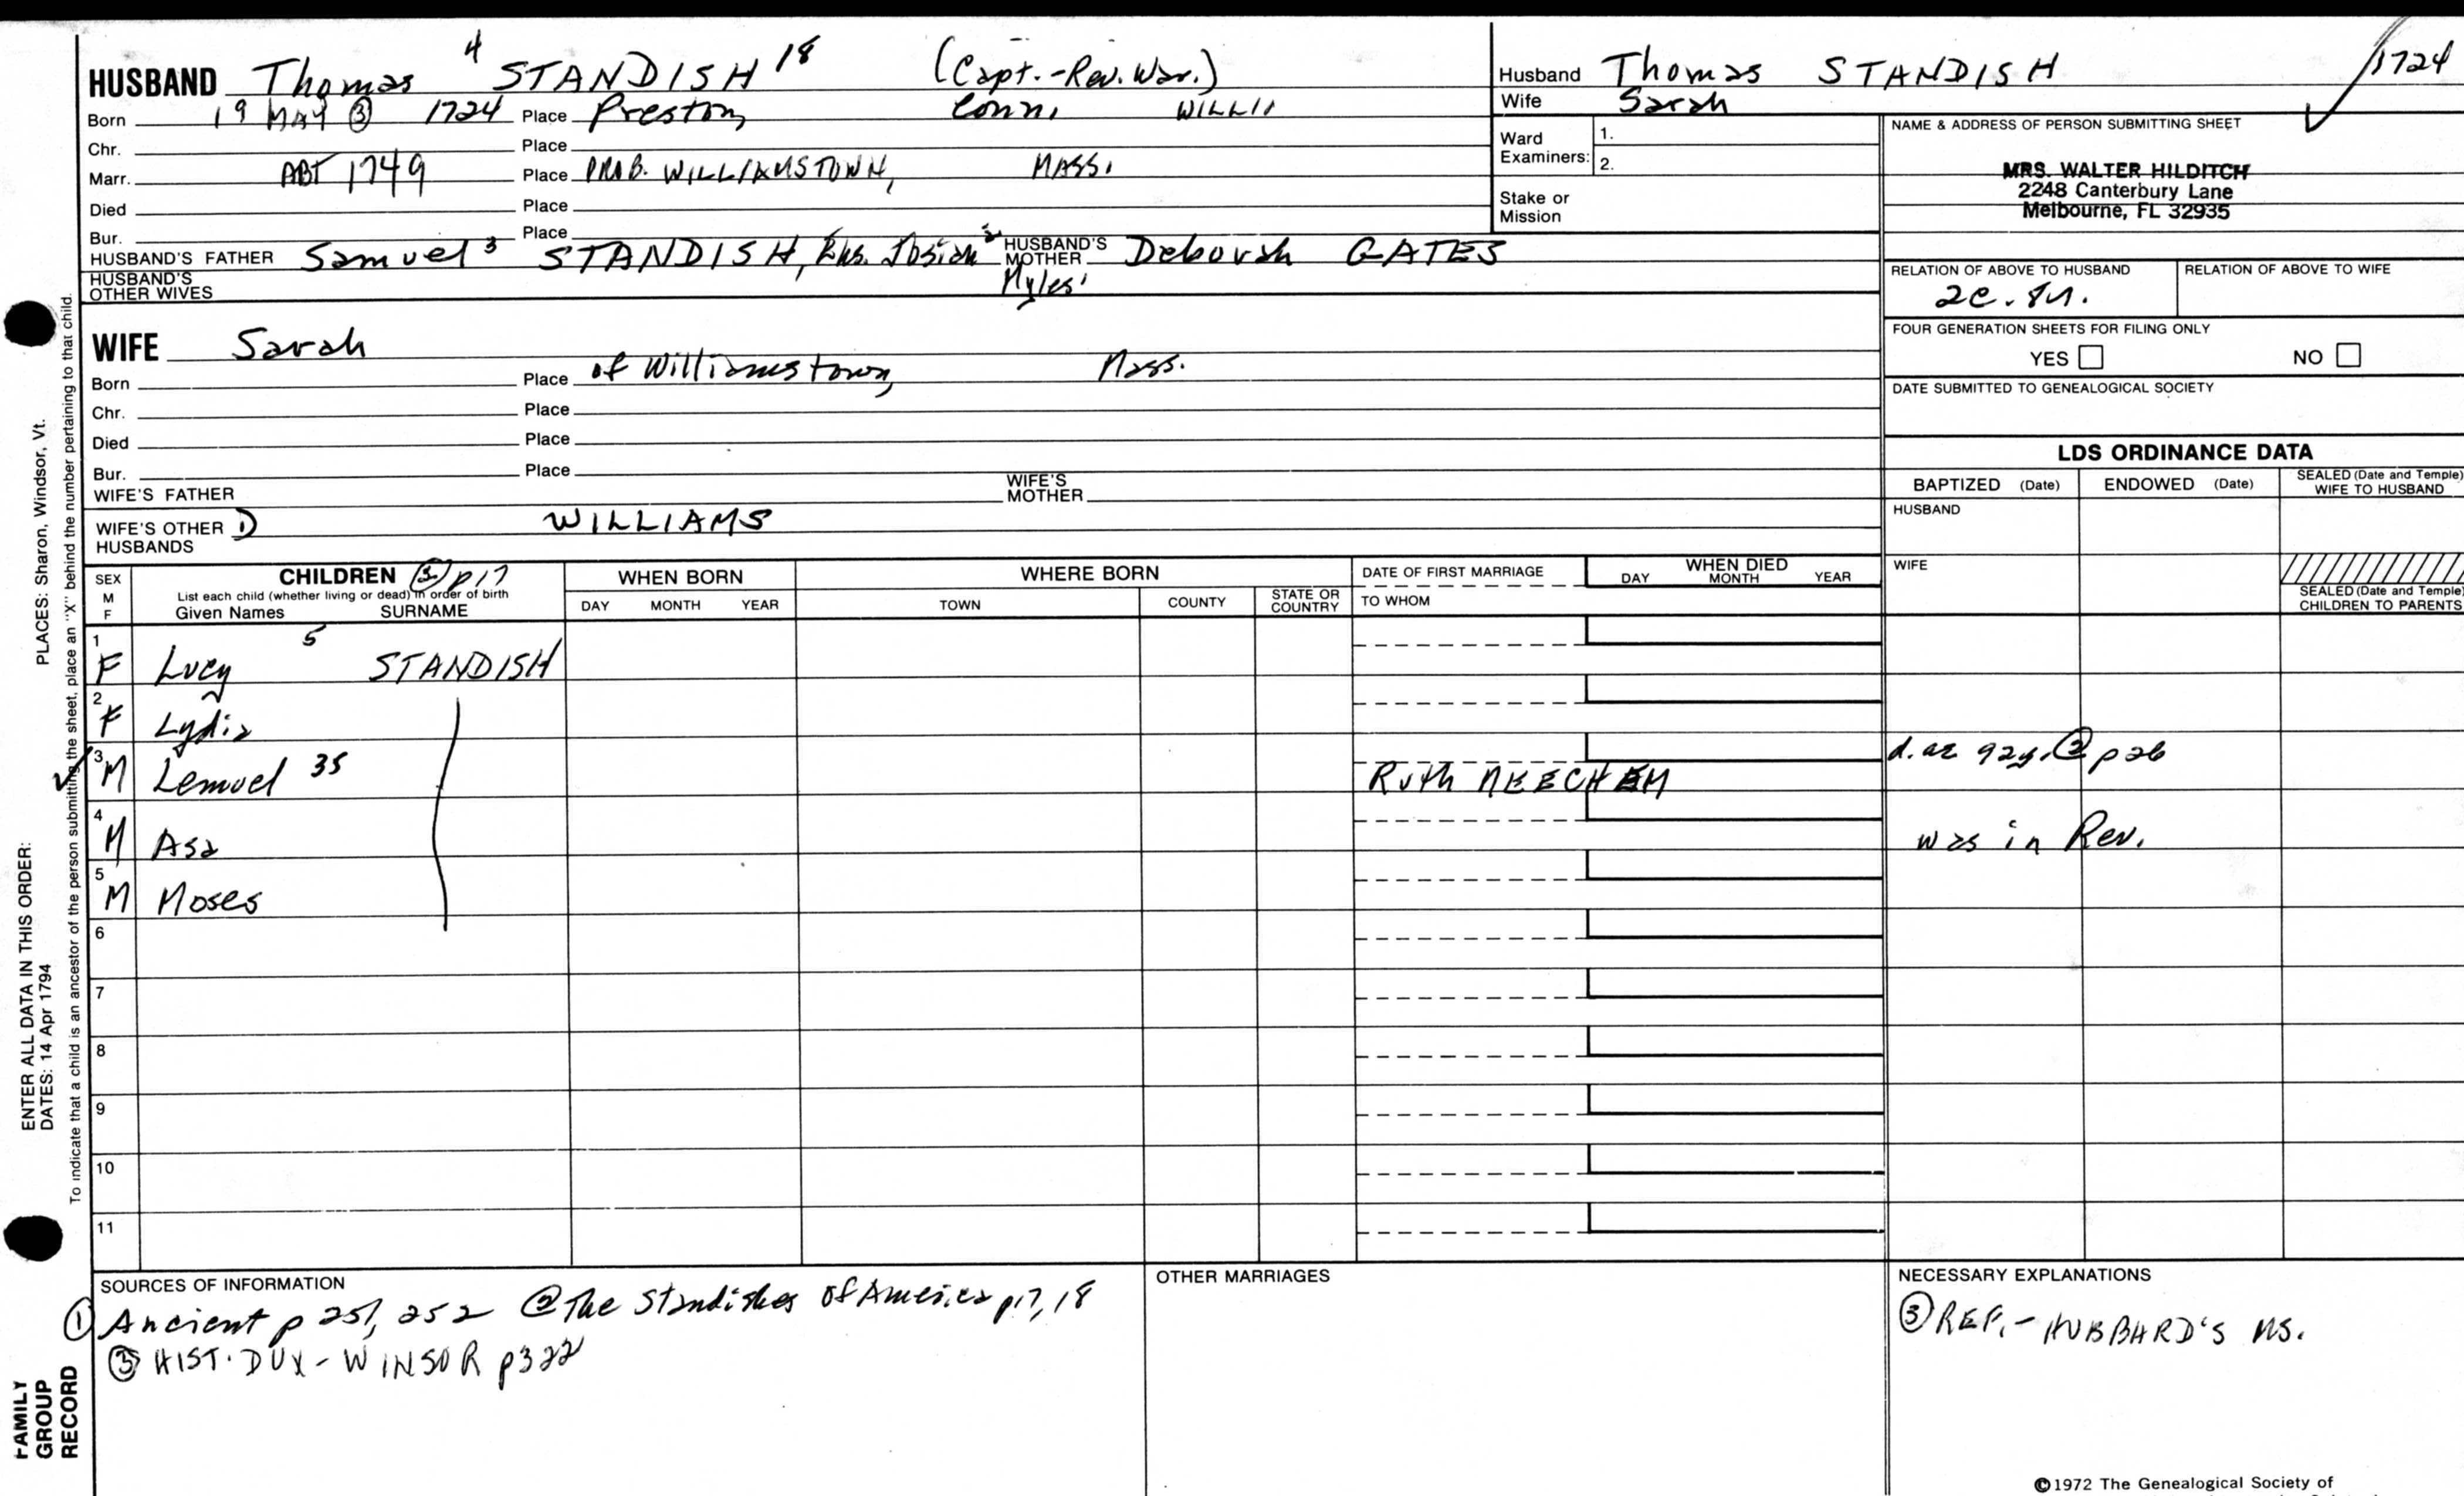 HUSBAND Thomas 4 STANDISH 18 (Capt.-Rev. War.)
Born 19 MAY ③ 1724 Place Preston, Conn, WILLII
Chr. Place
Marr. ABT 1749 Place PROB. WILLIAMSTOWN, MASS.
Died Place
Bur. Place
HUSBAND'S FATHER Samuel 3 STANDISH, Ens. Josiah 2 Myles 1 HUSBAND'S MOTHER Deborah GATES
HUSBAND'S OTHER WIVES
WIFE Sarah
Born Place of Williamstown, Mass.
Chr. Place
Died Place
Bur. Place
WIFE'S FATHER WIFE'S MOTHER
WIFE'S OTHER HUSBANDS ① WILLIAMS
Husband Thomas STANDISH 1724
Wife Sarah
Ward Examiners: 1.
2.
Stake or Mission
NAME & ADDRESS OF PERSON SUBMITTING SHEET
MRS. WALTER HILDITCH
2248 Canterbury Lane
Melbourne, FL 32935
RELATION OF ABOVE TO HUSBAND RELATION OF ABOVE TO WIFE
2c.8n.
FOUR GENERATION SHEETS FOR FILING ONLY
YES NO
DATE SUBMITTED TO GENEALOGICAL SOCIETY
LDS ORDINANCE DATA
BAPTIZED (Date) ENDOWED (Date) SEALED (Date and Temple) WIFE TO HUSBAND
HUSBAND
WIFE
SEALED (Date and Temple) CHILDREN TO PARENTS
SEX M F
CHILDREN p17
List each child (whether living or dead) in order of birth
Given Names SURNAME
WHEN BORN
DAY MONTH YEAR
WHERE BORN
TOWN COUNTY STATE OR COUNTRY
DATE OF FIRST MARRIAGE
TO WHOM
WHEN DIED
DAY MONTH YEAR
1 F Lucy 5 STANDISH
2 F Lydia
3 M Lemuel 35 Ruth MEECHEM d. ae 92y. ② p26
4 M Asa was in Rev.
5 M Moses
6
7
8
9
10
11
SOURCES OF INFORMATION
① Ancient p 251, 252 ② The Standishes of America p17, 18
③ HIST. DUX - WINSOR p322
OTHER MARRIAGES
NECESSARY EXPLANATIONS
③ REF. - HUBBARD'S MS.
©1972 The Genealogical Society of
PLACES: Sharon, Windsor, Vt.
To indicate that a child is an ancestor of the person submitting the sheet, place an "X" behind the number pertaining to that child.
ENTER ALL DATA IN THIS ORDER:
DATES: 14 Apr 1794
FAMILY
GROUP
RECORD